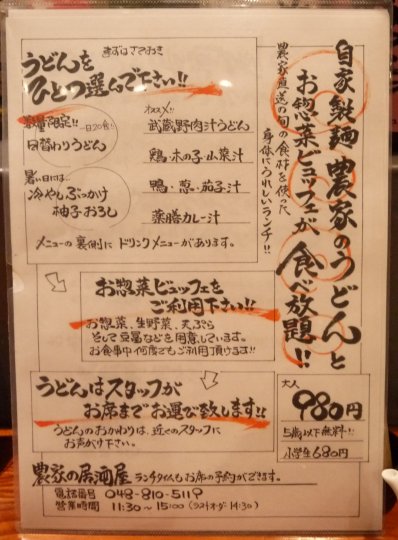 自家製麺 農家のうどんと
お惣菜ビュッフェが 食べ放題!!
農家直送の旬の食材を使った
身体にうれしいランチ!!
まずはさておき
うどんを
ひとつ選んで下さい!!
数量限定!! 一日20食!
日替わりうどん
暑い日には…
冷やしぶっかけ
柚子おろし
オススメ!!
武蔵野肉汁うどん
鶏・木の子・山菜汁
鴨・葱・茄子汁
薬膳カレー汁
メニューの裏側にドリンクメニューがあります。
お惣菜ビュッフェを
ご利用下さい!!
お惣菜、生野菜、天ぷら
そして豆冨などを用意しています。
お食事中何度でもご利用頂けます!!
うどんはスタッフが
お席までお運び致します!!
うどんのおかわりは、近くのスタッフに
お声がけ下さい。
大人
980円
5歳以下無料!!
小学生680円
農家の居酒屋 ランチタイムもお席の予約ができます。
電話番号 048-810-5119
営業時間 11:30~15:00(ラストオーダー14:30)